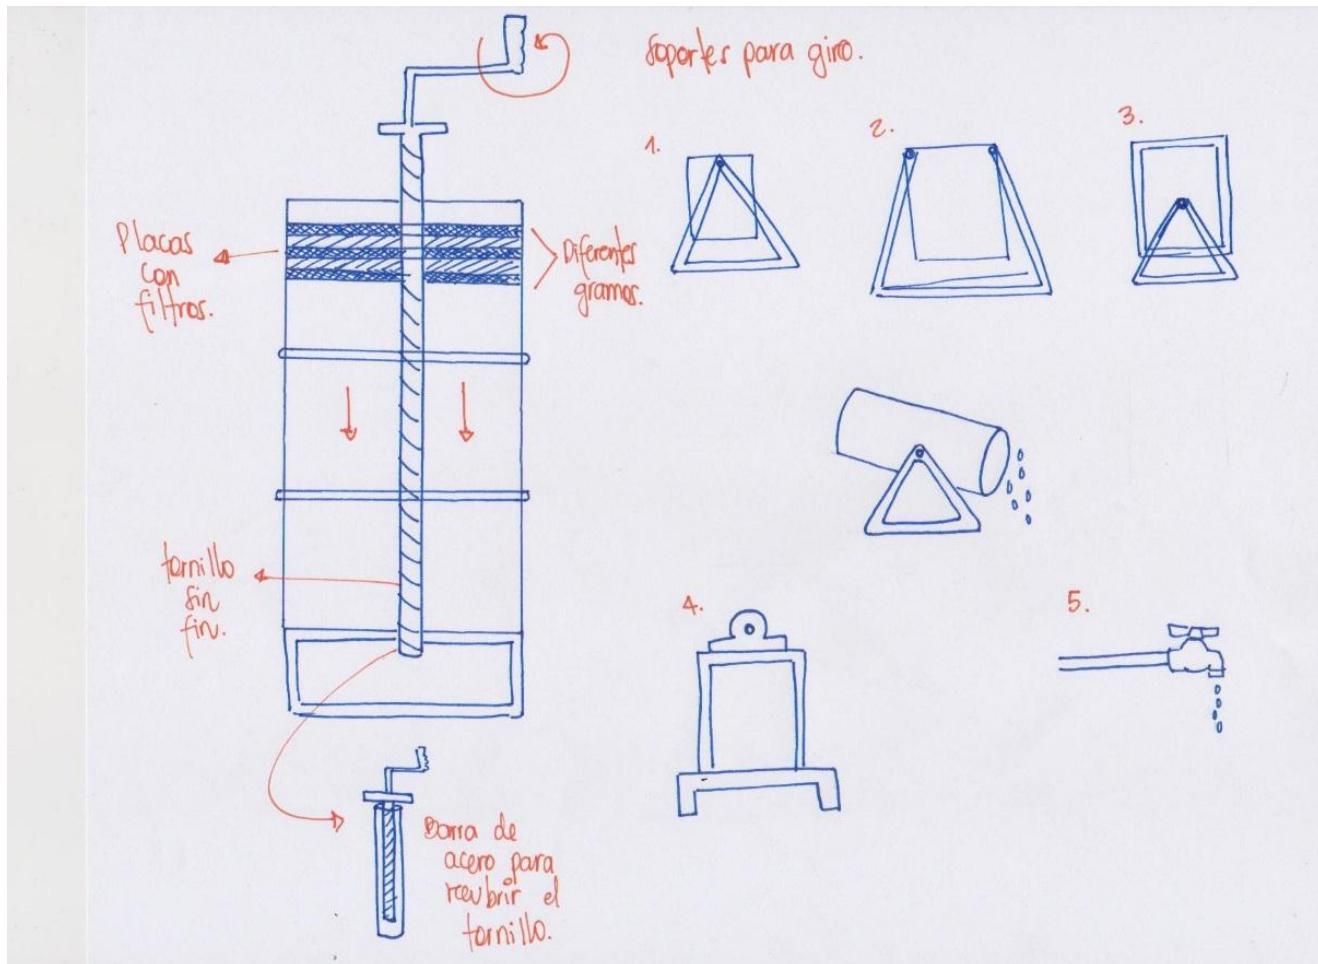 Soportes para giro.
1.
2.
3.
Placas
con
filtros.
Diferentes
gramos.
tornillo
sin
fin.
4.
5.
Barra de
acero para
recubrir el
tornillo.